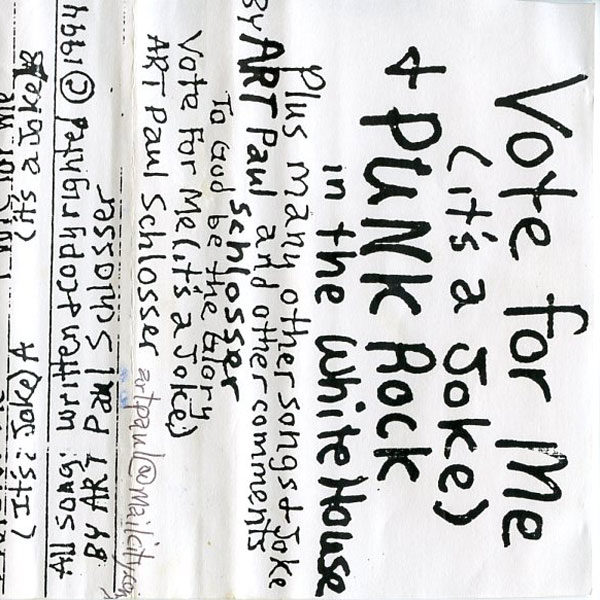 Vote for Me
(it's a Joke)
+ PUNK ROCK
in the White House
Plus many other songs + Joke
and other comments
By ART Paul
Schlosser
To God be the Glory
Vote for Me (it's a Joke)
ART Paul Schlosser artpaul@mailcity.com
All song: written + copyrighted © 1997
By ART Paul Schlosser
(it's a Joke)
(It's: Joke) A